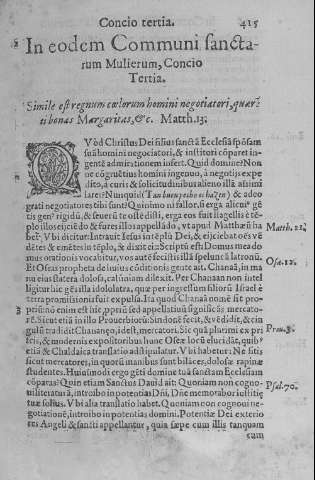 Concio tertia. 415
In eodem Communi sancta-
rum Mulierum, Concio
Tertia.
Simile est regnum cœlorum homini negotiatori, quær̃
ti bonas Margaritas, &c. Matth.13.
QVòd Christus Dei filius sanctã Ecclesiã spõsam
suã homini negociatori, & institori cõparet in-
gentẽ admirationem insert. Quid domine? Non
ne cõgruẽtius homini ingenuo, à negotijs expe
dito, à curis & solicitudinibus alieno illã assimi
lares? Nunquid & adeo
grati negotiatores tibi sunt? Quinimo ni fallor, si erga
gẽs rigidũ, & seuerũ te ostẽdisti, erga eos fuit flagellis è tẽ-
plo illos eijciẽdo & fures illos appellãdo, vt apud Matthæũ ha
betʳ. Vbi dicitur: Intrauit Iesus in tẽplũ Dei, & eijciebat oẽs vẽ
dẽtes & emẽtes in tẽplo, & dixit eis: Scriptũ est: Domus mea do
mus orationis vocabitur, vos autẽ fecistis illã speluncã latronũ.
Matth. 21.
Et Oseas propheta de huius cõditionis gente ait. Chanaã, in ma
nu eius statera dolosa, calũniam dilexit. Per Chanaan non intel
Osæ.12.
ligitur hic gẽs illa idololatra, quæ per ingressum filiorũ Israel è
terra promissionis fuit expulsa. Ita quod Chanaã nomẽ sit pro-
priũ: nõ enim est hic, ppriũ sed appellatiuũ significãs mercato-
rẽ. Sicut etiã in illo Prouerbiorũ: Sindonẽ fecit, & vẽdidit, & cin
gulũ tradidit Chananæo, id est, mercatori. Sic quã plurimi ex pri
Prou.3.
scis, & modernis expositoribus hunc Oseæ locũ elucidãt, quib
etiã & Chaldaica translatio adstipulatur. Vbi habetur: Ne sitis
sicut mercatores, in quorũ manibus sunt bilãces, dolosæ rapinæ
studentes. Huiusmodi ergo gẽti domine tuã sanctam Ecclesiam
cõparas? Quin etiam Sanctus Dauid ait: Quoniam non cogno-
ui literaturã, introibo in potentias Dñi, Dñe memorabor iustitiæ
Psal.70.
tuæ solius. Vbi alia translatio habet. Quoniam non cognoui ne-
gotiationẽ, introibo in potentias domini. Potentiæ Dei exterio
res Angeli & sancti appellantur, quia sæpe cum illis tanquam
cum